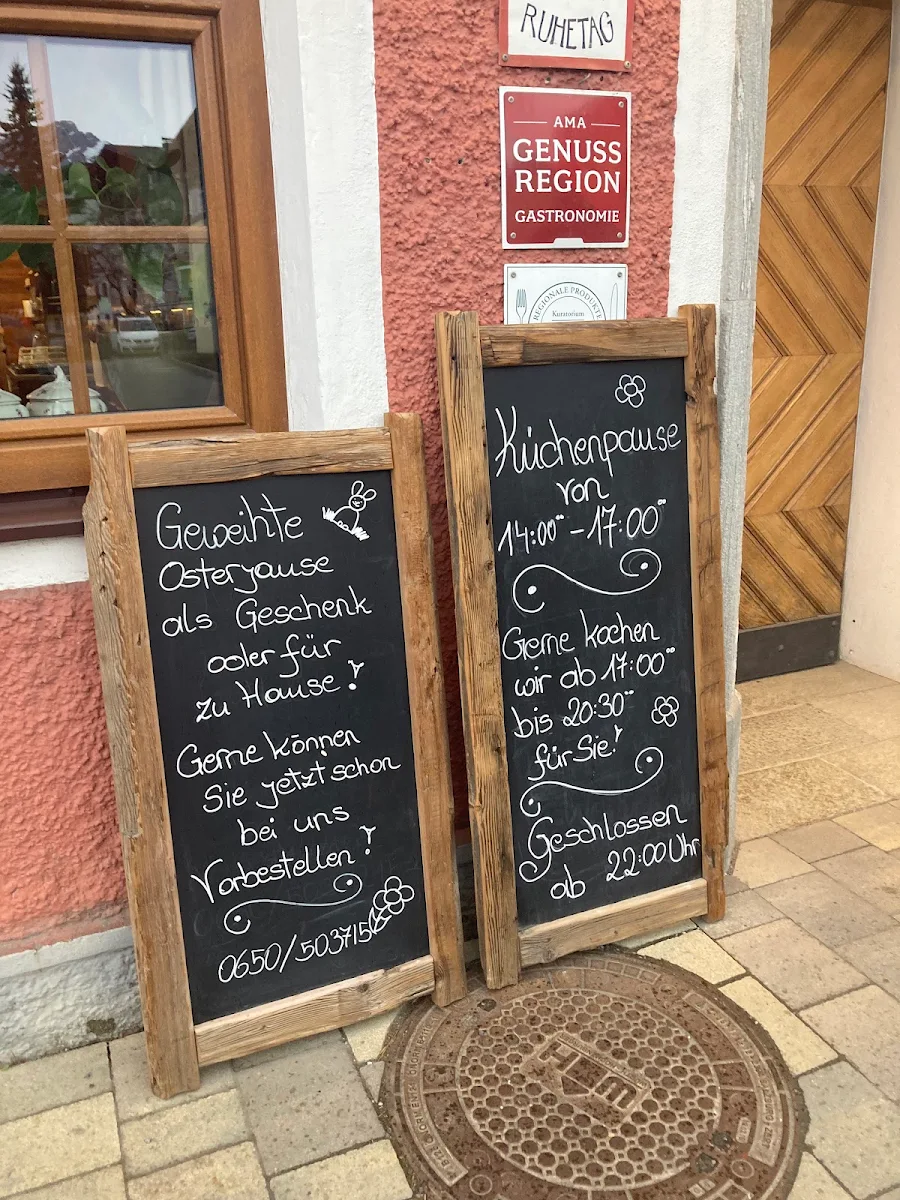 RUHETAG
AMA
GENUSS
REGION
GASTRONOMIE
REGIONALE PRODUKTE
Kuratorium
Geweihte
Osterjause
als Geschenk
oder für
zu Hause!
Gerne können
Sie jetzt schon
bei uns
Vorbestellen!
0650/5037156
Küchenpause
von
14:00"-17:00"
Gerne kochen
wir ab 17:00"
bis 20:30"
für Sie!
Geschlossen
ab 22:00Uhr